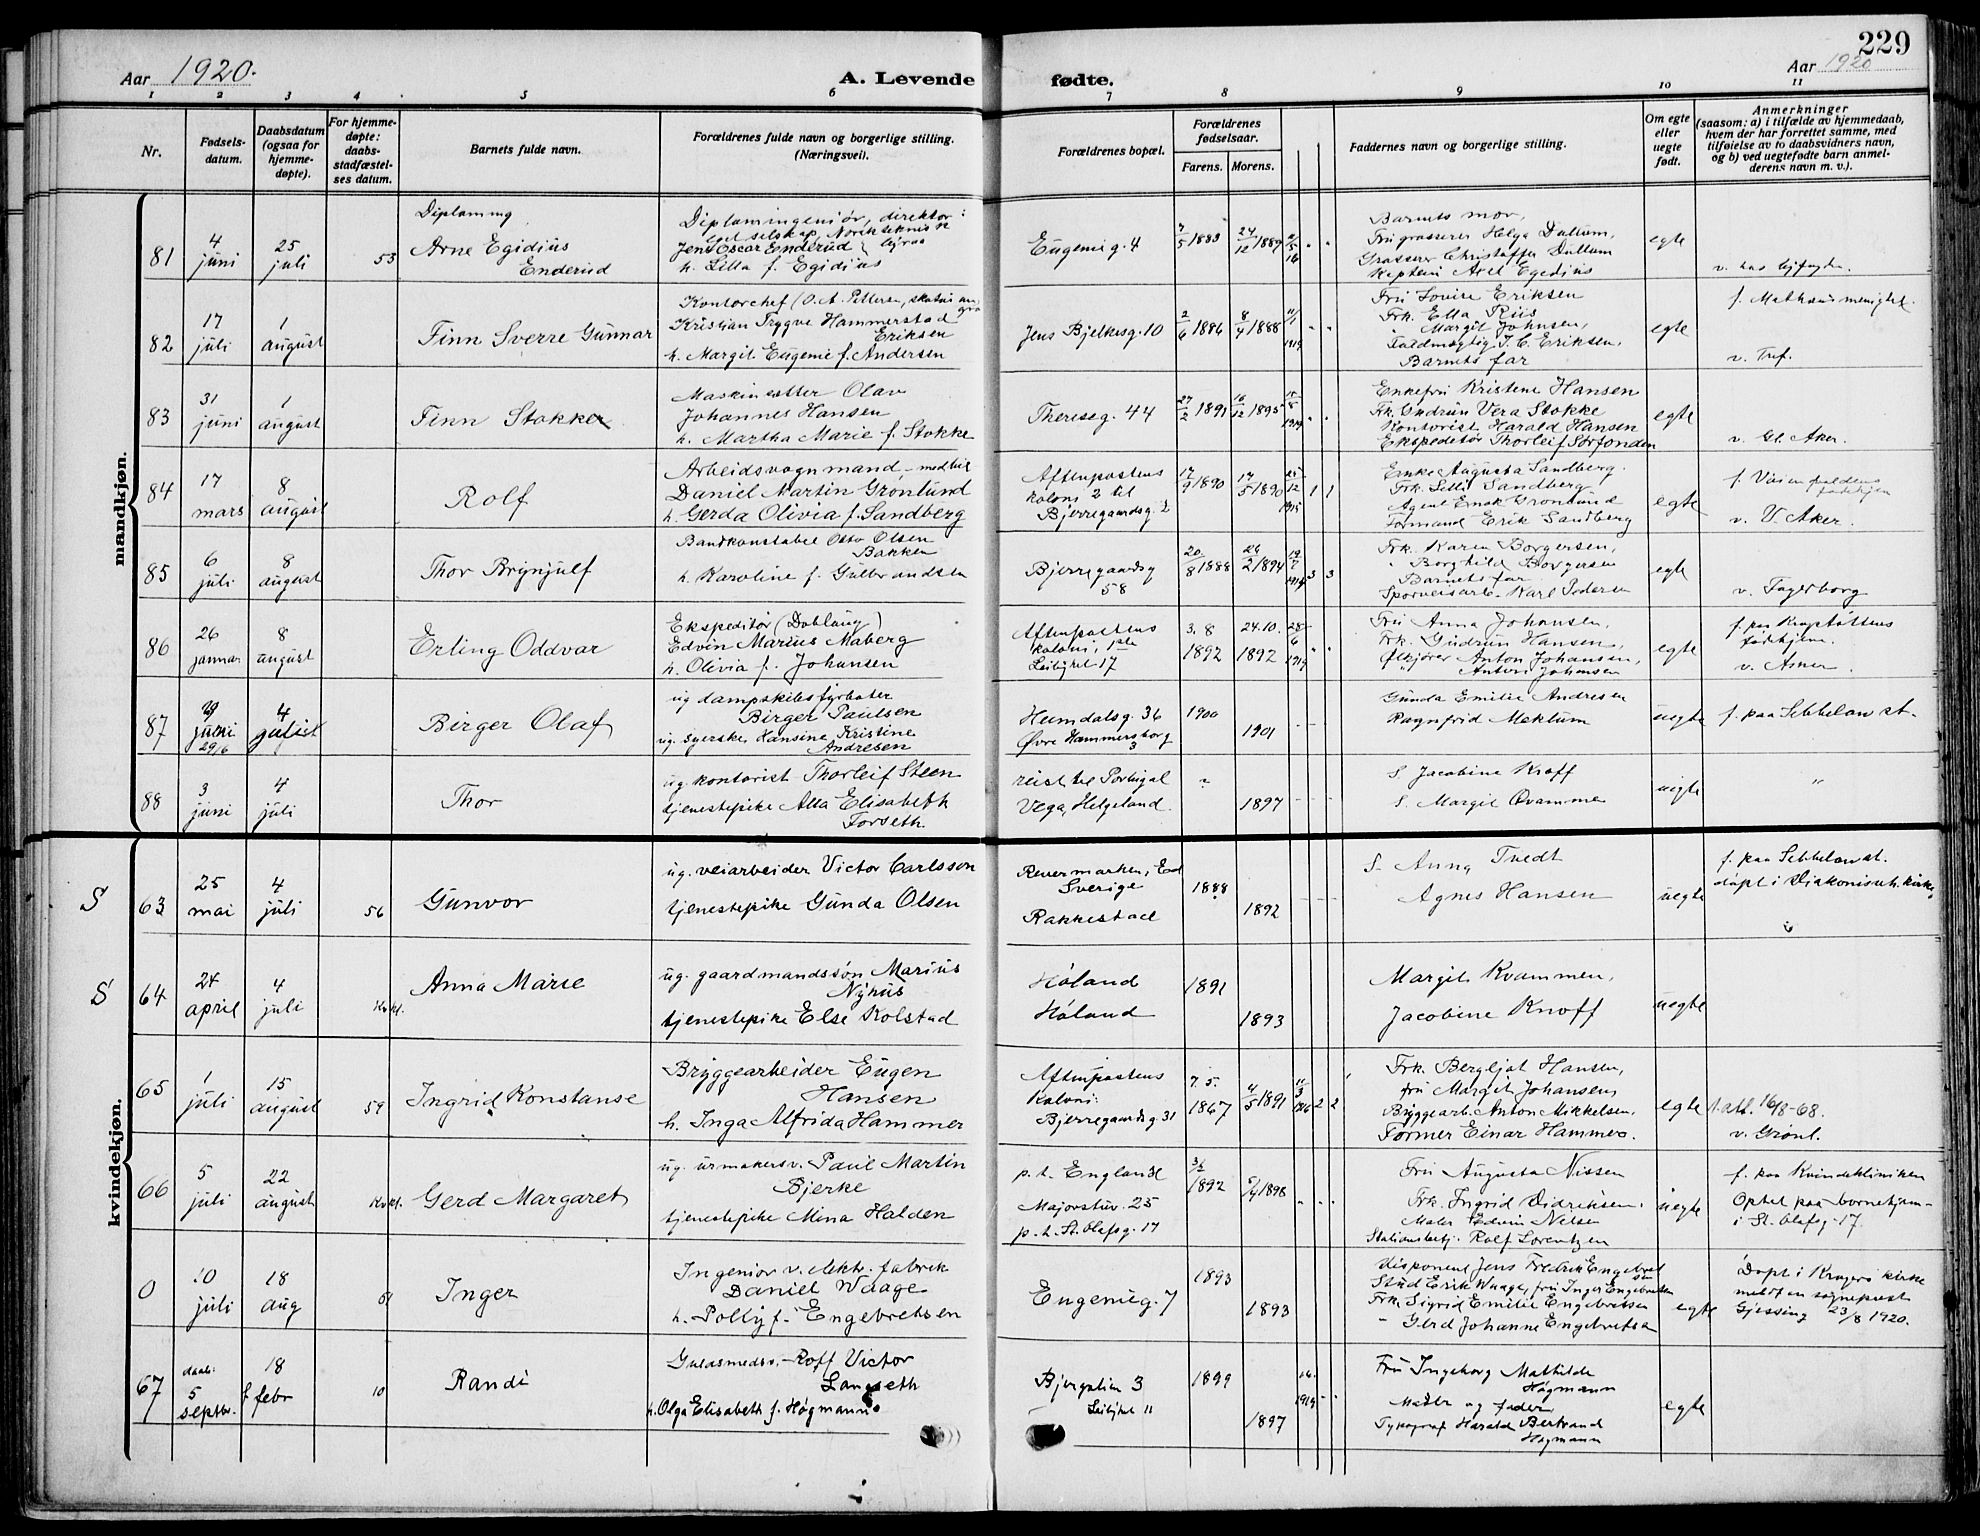 229
Aar 1920.
A. Levende fødte.
Aar 1920
1 2 3 4 5 6 7 8 9 10 11
Nr.
Fødsels-
datum.
Daabsdatum
(ogsaa for
hjemme-
døpte).
For hjemme-
døpte:
daabs-
stadfæstel-
ses datum.
Barnets fulde navn.
Forældrenes fulde navn og borgerlige stilling.
(Næringsvei).
Forældrenes bopæl.
Forældrenes
fødselsaar.
Farens. Morens.
Faddernes navn og borgerlige stilling.
Om egte
eller
uegte
født.
Anmerkninger
(saasom: a) i tilfælde av hjemmedaab,
hvem der har forrettet samme, med
tilføielse av to daabsvidners navn,
og b) ved uegtefødte barn anmel-
derens navn m. v.).
mandkjøn.
81
4
juni
25
juli
53
Arne Egidius
Enderud
Diplomingeniør, direktør
Jens Oscar Enderud
h. Lilla f. Egidius
Eugenig. 4
7/5 1883
24/12 1889
Barnets mor,
Fru grosserer Helga Dullum,
Grosserer Christoffer Dullum
Kaptein Axel Egedius
egte
82
17
juli
1
august
Finn Sverre Gunnar
Kristian Trygve Hammerstad
Eriksen
h. Margit Eugenie f. Andersen
Jens Bjelkesg. 10
2/6 1886
8/4 1888
Fru Lovise Eriksen
Frk. Ella Riis
" Margit Johnsen,
Fuldmægtig T. C. Eriksen.
Barnets far
egte
f. Mathæus menighet.
v. Tref.
83
31
juni
1
august
Finn Stokke
Maskinsetter Olav
Johannes Hansen
h. Martha Marie f. Stokke
Thereseg. 44
27/2 1891
16/12 1895
Enkefru Kristene Hansen
Frk. Gudrun Vera Stokke
Kontorist Harald Hansen
Ekspeditør Thorleif Sørfonden
egte
v. Gl. Aker.
84
17
mars
8
august
Rolf
Arbeidsvognmand - med bil
Daniel Martin Grønlund
h. Gerda Olivia f. Sandberg
Aftenpostens
koloni 2 til
Bjerregaardsg. 2
17/9 1890
17/5 1890
25/12 1915
1 1
Enke Augusta Sandberg.
Frk. Lilli Sandberg
Agent Enok Grønlund
Formand Erik Sandberg
egte
v. V. Aker.
85
6
juli
8
august
Thor Brynjulf
Bankkonstabel Otto Olsen
Bakken
h. Karoline f. Gulbrandsen
Bjerregaardsg
58
20/8 1888
26/2 1894
19/7 1914
3 3
Frk. Karen Borgersen,
" Borghild Borgersen
Barnets far
Sporveisarb. Karl Pedersen
egte
v. Fagerborg
86
26
januar
8
august
Erling Oddvar
Ekspeditør (Dobloug)
Edvin Marius Maberg
h. Olivia f. Johansen
Aftenpostens
koloni, 1ste
Leilighet 17
3. 8
1892
24.10.
1892
28/6 1919
Fru Anna Johansen,
Frk. Gudrun Hansen,
Ølkjører Anton Johansen,
" Anton Johansen
egte
f. paa Krogstøttens
fødehjem.
v. Asker.
87
29
juni
29/6
4
juli
Birger Olaf
ug dampskibsfyrbøter
Birger Paulsen
ug. syerske Hansine Kristine
Andresen
Heimdalsg. 36
Øvre Hammersborg
3
1900
1901
Gunda Emilie Andresen
Ragnfrid Mektum
uegte
f. paa Sebbelow st.
88
3
juni
4
juli
Thor
ug. kontorist Thorleif Steen
tjenestepike Alla Elisabeth
Forseth.
reist til Portugal
Vega, Helgeland
?
1897
S. Jacobine Knoff
S. Margit Qvamme
uegte
"
kvindekjøn.
S
63
25
mai
4
juli
56
Gunvor
ug. veiarbeider Victor Carlsson
tjenestepike Gunda Olsen
Reuermarken, Ed
Sverige
Rakkestad
1888
1892
S. Anna Tvedt
Agnes Hansen
uegte
f. paa Sebbelow st.
døpt i Diakonisseh. kirke
S
64
24
april
4
juli
Kvkl.
Anna Marie
ug. gaardmandssøn Marius
Nyhus
tjenestepike Else Kolstad
Høland
Høland
1891
1893
Margit Kvammen,
Jacobine Knoff
uegte
65
1
juli
15
august
59
Ingrid Konstanse
Bryggearbeider Eugen
Hansen
h. Inga Alfrida Hammer
Aftenpostens
Koloni:
Bjerregaardsg 31
7. 5.
1867
4/5 1891
11/3 1916
2 2
Frk. Bergljot Hansen,
fru Margit Johansen
Bryggearb. Anton Mikkelsen.
Former Einar Hammer.
egte
1. att. 16/8-68.
v. Grønl.
66
5
juli
22
august
Kvkl.
Gerd Margaret
ug. urmakersv. Paul Martin
Bjerke
tjenestepike Mina Halden
p. t. England
Majorstuv. 25
p. t. St. Olafsg. 17
1892
5/4 1898
Fru Augusta Nissen
Frk. Ingrid Didriksen.
Maler Edwin Nelsen
Stationsbetj. Rolf Lorentzen
uegte
f. paa Kvindeklinikken
Optat paa barnehjem-
i St. Olafsg. 17.
0
10
juli
18
aug
61
Inger
Ingeniør v. elektr. fabrik
Daniel Waage
h. Polly f. Engebretsen
Eugenieg. 7
1893
1893
Disponent Jens Fredrik Engebret
sen
Stud Erik Waage, fru Inger Engebretsen
Frk. Sigrid Emilie Engebretsen
" Gerd Johanne Engebretsen
egte
Døpt i Kragerø kirke
meldt av sogneprest
Gjessing 23/8 1920.
67
daab:
5
septbr.
18
f. febr
10
Randi
Guldsmedsv. Rolf Victor
Langseth
h. Olga Elisabeth f. Høgmann
Bjergslien 3
Leilighet 11
1899
1897
Fru Ingeborg Mathilde
Høgmann
Moder og fader
Typograf Harald Bertrand
Høgmann
egte